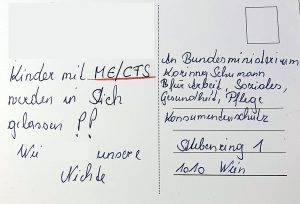 Kinder mit ME/CFS
werden in Stich
gelassen ??
Wie unsere
Nichte
An Bundesministerium
Korinna Schumann
für Arbeit, Soziales,
Gesundheit, Pflege
Konsumentenschutz
Stubenring 1
1010 Wien